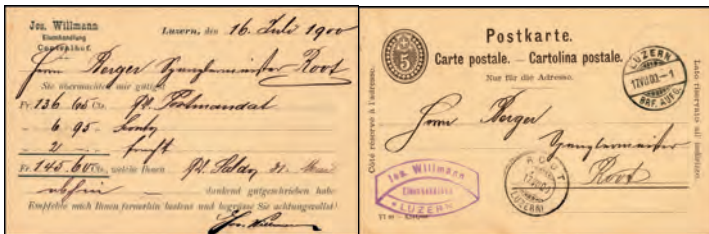 Jos. Willmann
Eisenhandlung
Centralhof.
Luzern, den 16. Juli 1900
Herrn Berger Spenglermeister Root
Sie übermachten mir gütigst
Fr. 136.65 Cts. pr. Postmandat
" 6 95.
" 2 "
Fr. 145.60 Cts., welche Ihnen pr. Saldo
dankend gutgeschrieben habe.
Empfehle mich Ihnen fernerhin bestens und begrüsse Sie achtungsvollst!
Jos. Willmann
Postkarte.
Carte postale. – Cartolina postale.
Nur für die Adresse.
5
Côté réservé à l'adresse.
Lato riservato all' indirizzo.
LUZERN
17.VII.00.–1
BRF. AUFG.
Herrn Berger
Spenglermeister
Root
Jos. Willmann
Eisenhandlung
LUZERN
ROOT
(LUZERN)